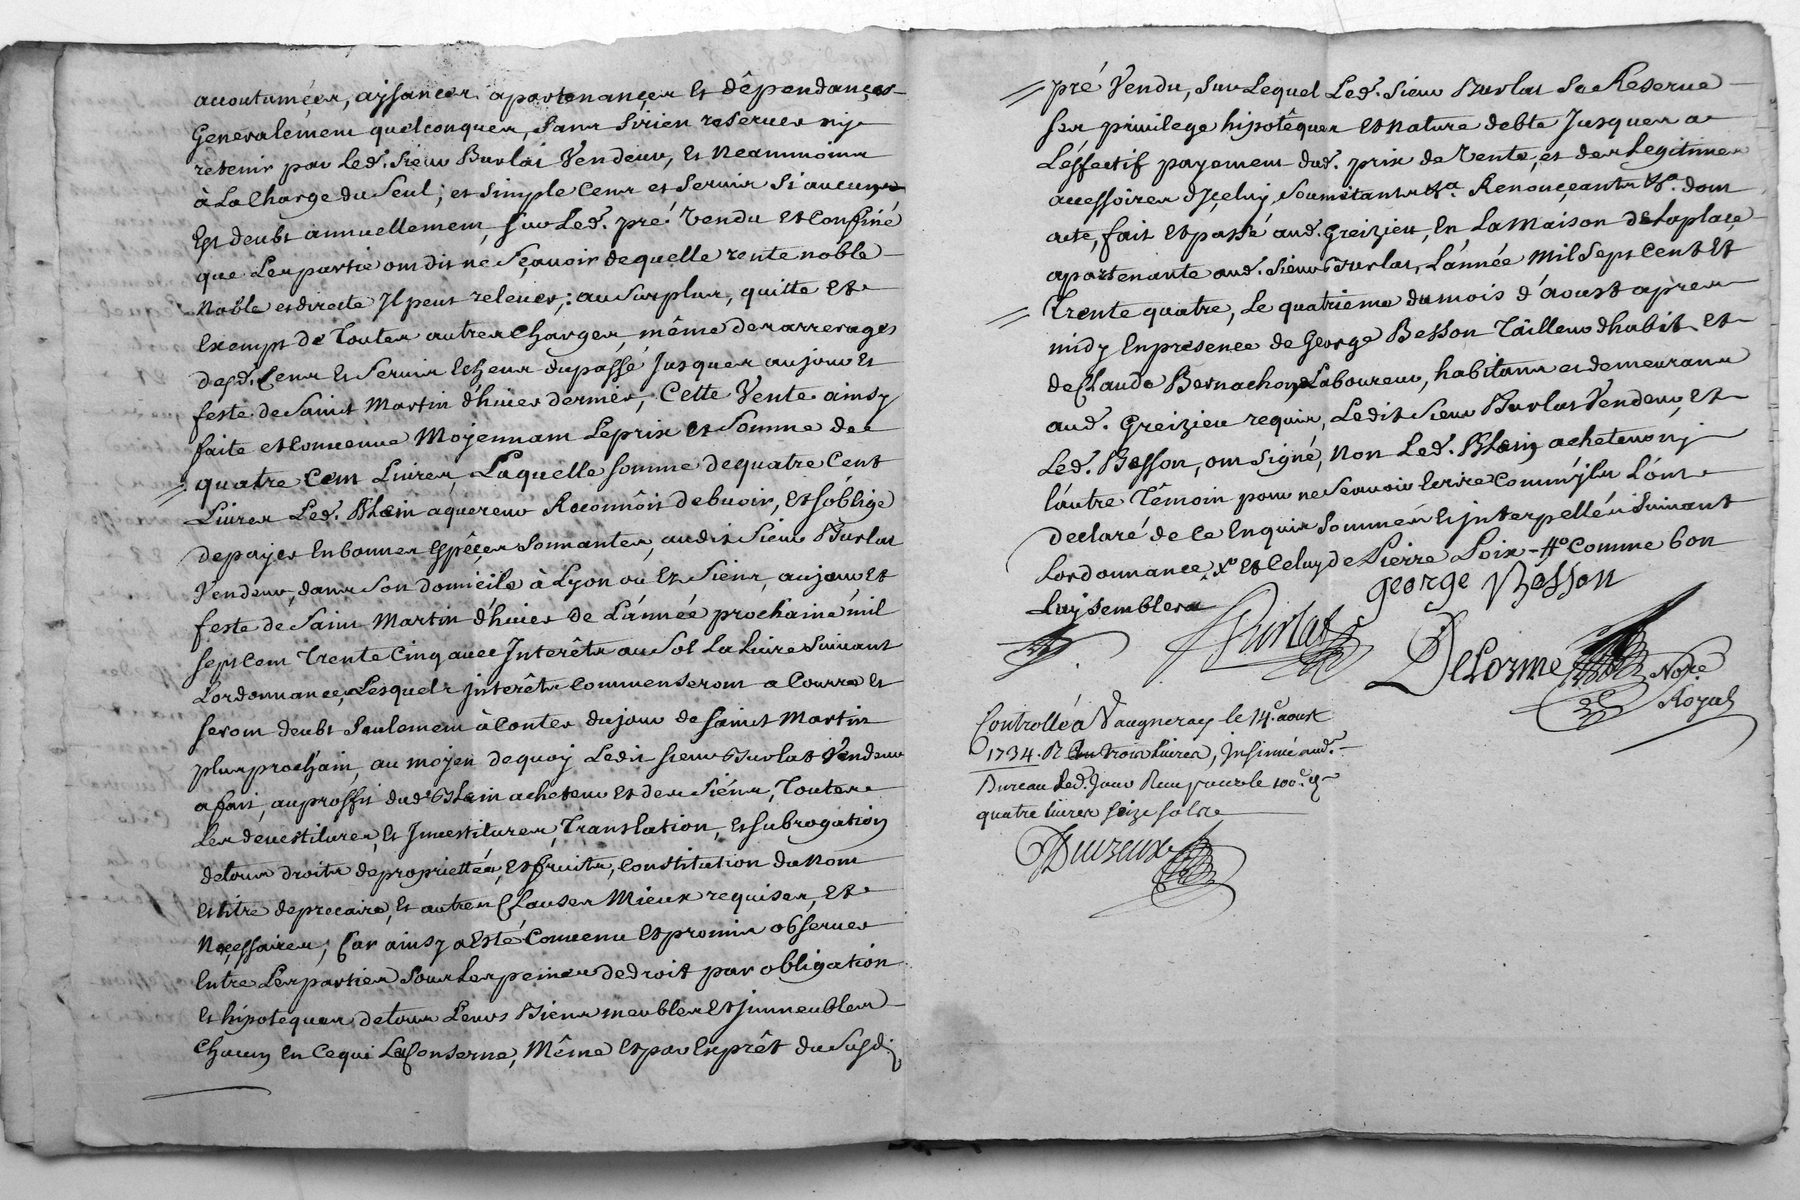 accoutumées, aysances apartenances Et dêpendances
Generalement quelconques, Sans Sirien reserver ny
retenir par Led. Sieur Burlat Vendeur, Et Neanmoins
à La Charge du Seul; et Simple Cens et Servis Si aucuns
Est deubt annuellement, Sur Led. pré Vendu Et Confiné
que Les partie ont dit ne Sçavoir de quelle rente noble
Noble et directe Jl peut relever; au Surplus, quitte Et
Exempt de Toutes autres Charges, même des arrerages
desd. Cens Et Servis Echeus du passé Jusques au jour Et
feste de Saint Martin d'hiver dernier, Cette Vente ainsy
faite et Convenue Moyennant Le prix Et Somme de
quatre Cent Livres, Laquelle Somme de quatre Cent
Livres Led. Blain aquereur Reconnôit debvoir, Et S'oblige
de payer En bonnes Espêces Sonnantes, audit Sieur Burlat
Vendeur, dans Son domicile à Lyon ou Es Siens, au jour Et
feste de Saint Martin d'hiver de L'année prochaine mil
Sept Cent Trente Cinq avec Interêts au Sol La Livre Suivant
Lordonnance, Lesquels jnterêts Commenseront a Courre et
Seront deubt Seulement à Conter du jour de Saint Martin
plus prochain, au moyen de quoy Ledit Sieur Burlat Vendeur
a fait, au proffit dud. Blain acheteur Et des Siéns, Toutes
Les devestitures, Et Jnvestitures, Translation, Et Subrogation
de tous droits de propriettés, Et fruits, Constitution du Nom
Et titre de precaire, Et autres Clauses Mieux requises, Et
Necessaires; Car ainsy a Esté Convenu Et promis observer
Entre Les parties Sous Les peines de droit par obligation
Et hipoteques de tous Leurs Biens meubles Et jmmeubles
Chacun En Cequi La Conserne, Même Et par Exprêt du Susd.
pré Vendu, Sur Lequel Led. Sieur Burlat Se Reserve
Ses privilege hipotêques Et nature debte Jusques a
L'éffectif payement dud. prix de Vente, et des Legitimes
accessoires d'Jceluy Soumitants &a. Renonçeants &a. dont
acte, fait Et passé aud. Greizieu, En La Maison de Laplace
apartenante aud. Sieur Burlat, L'année Mil Sept Cent Et
Trente quatre, Le quatrieme du mois d'aoust apres
midy En presence de George Besson Tailleur d'habit Et
de Claude Bernachon Laboureur, habitans et demeurans
aud. Greizieu requis, Ledit Sieur Burlat Vendeur, Et
Led. Besson, ont Signé, Non Led. Blain acheteur nj
l'autre Têmoin pour ne Scavoir Ecrire Comm'jls L'ont
declaré de Ce Enquis Sommés Et jnterpellés Suivant
Lordonnance, Xo Et Celuy de Pierre Loix - ffo Comme bon
Luy Semblera
George Besson
Burlat
Delorme Nore
Royal
Controllé à Vaugneray le 14e. aoust
1734. R trois Livres, Jnsinué aud.
Bureau Led. Jour Reçu pour le 100e. d
quatre Livres Seize Sols